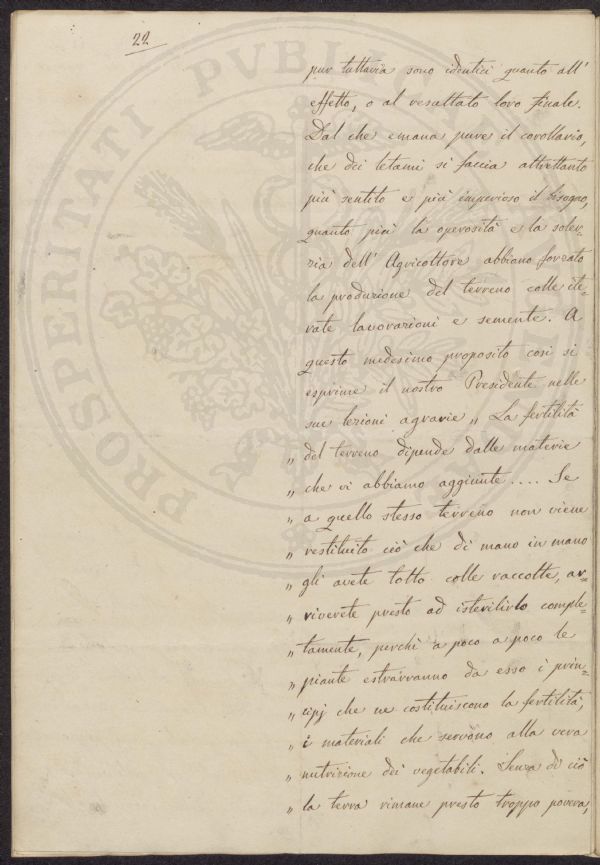 22
pur tuttavia sono identici quanto all'
effetto, o al resultato loro finale.
Dal che emana pure il corollario,
che dei letami si faccia altrettanto
più sentito e più imperioso il bisogno,
quanto più la operosità e la soler-
zia dell' Agricoltore abbiano forzato
la produzione del terreno colle ite-
rate lavorazioni e semente. A
questo medesimo proposito così si
esprime il nostro Presidente nelle
sue lezioni agrarie „ La fertilità
„ del terreno dipende dalle materie
„ che vi abbiamo aggiunte .... Se
„ a quello stesso terreno non viene
„ restituito ciò che di mano in mano
„ gli avete tolto colle raccolte, ar-
„ riverete presto ad isterilirlo comple-
„ tamente, perchè a poco a poco le
„ piante estrarranno da esso i prin-
„ cipj che ne costituiscono la fertilità,
„ i materiali che servono alla vera
„ nutrizione dei vegetabili. Senza di ciò
„ la terra rimane presto troppo povera,
PROSPERITATI PUBLICAE